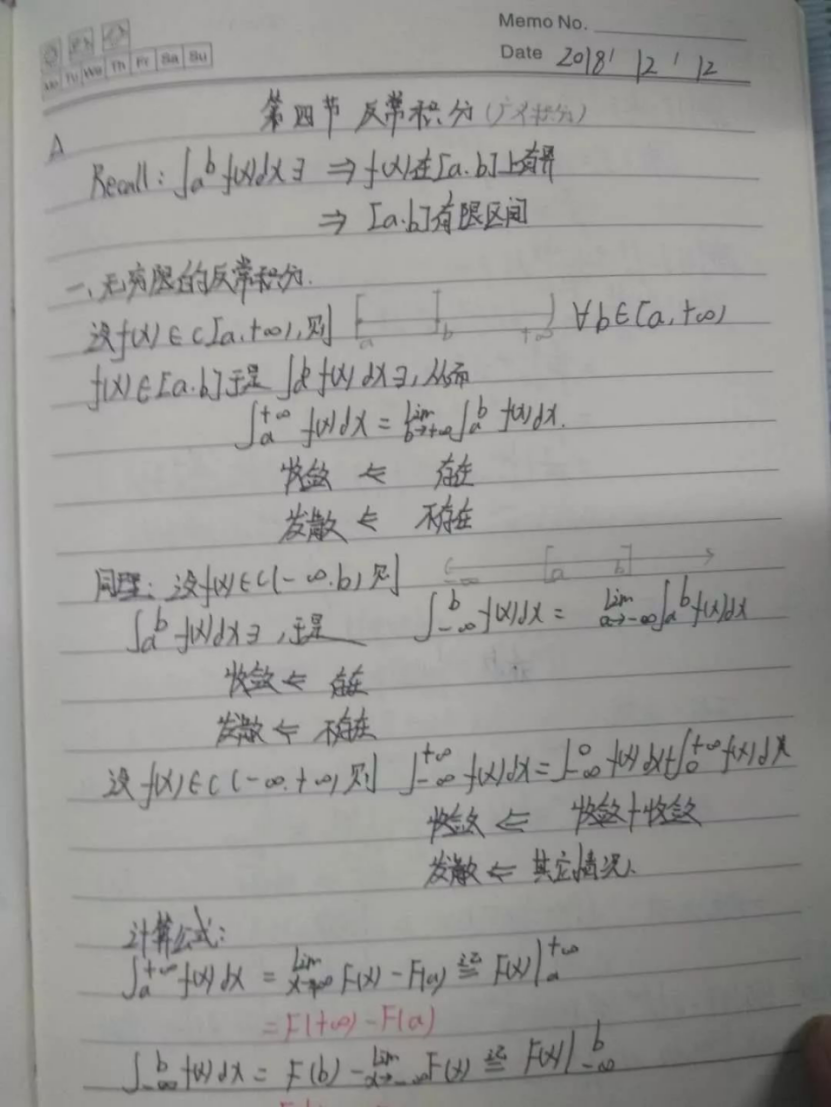 Memo No.
Mo Tu We Th Fr Sa Su
Date 2018' 12' 12
第四节 反常积分(广义积分)
Recall: ∫ₐᵇ f(x)dx ∃ ⇒ f(x)在[a.b]上有界
⇒ [a.b]有限区间
一、无穷限的反常积分.
设f(x)∈C[a,+∞),则 [ a b +∞ ) ∀b∈[a,+∞)
f(x)∈[a.b]于是 ∫ₐᵇ f(x)dx∃,从而
∫ₐ^{+∞} f(x)dx = lim_{b→+∞} ∫ₐᵇ f(x)dx.
收敛 ⇐ 存在
发散 ⇐ 不存在
同理: 设f(x)∈C(-∞.b),则 -∞ [a b]
∫ₐᵇ f(x)dx∃,于是 ∫_{-∞}^b f(x)dx = lim_{a→-∞} ∫ₐᵇ f(x)dx
收敛 ⇐ 存在
发散 ⇐ 不存在
设f(x)∈C(-∞.+∞)则 ∫_{-∞}^{+∞} f(x)dx = ∫_{-∞}^0 f(x)dx+∫_0^{+∞} f(x)dx
收敛 ⇐ 收敛+收敛
发散 ⇐ 其它情况.
计算公式:
∫ₐ^{+∞} f(x)dx = lim_{x→+∞} F(x) - F(a) ≝记 F(x)|ₐ^{+∞}
= F(+∞) - F(a)
∫_{-∞}^b f(x)dx = F(b) - lim_{x→-∞} F(x) ≝记 F(x)|_{-∞}^b